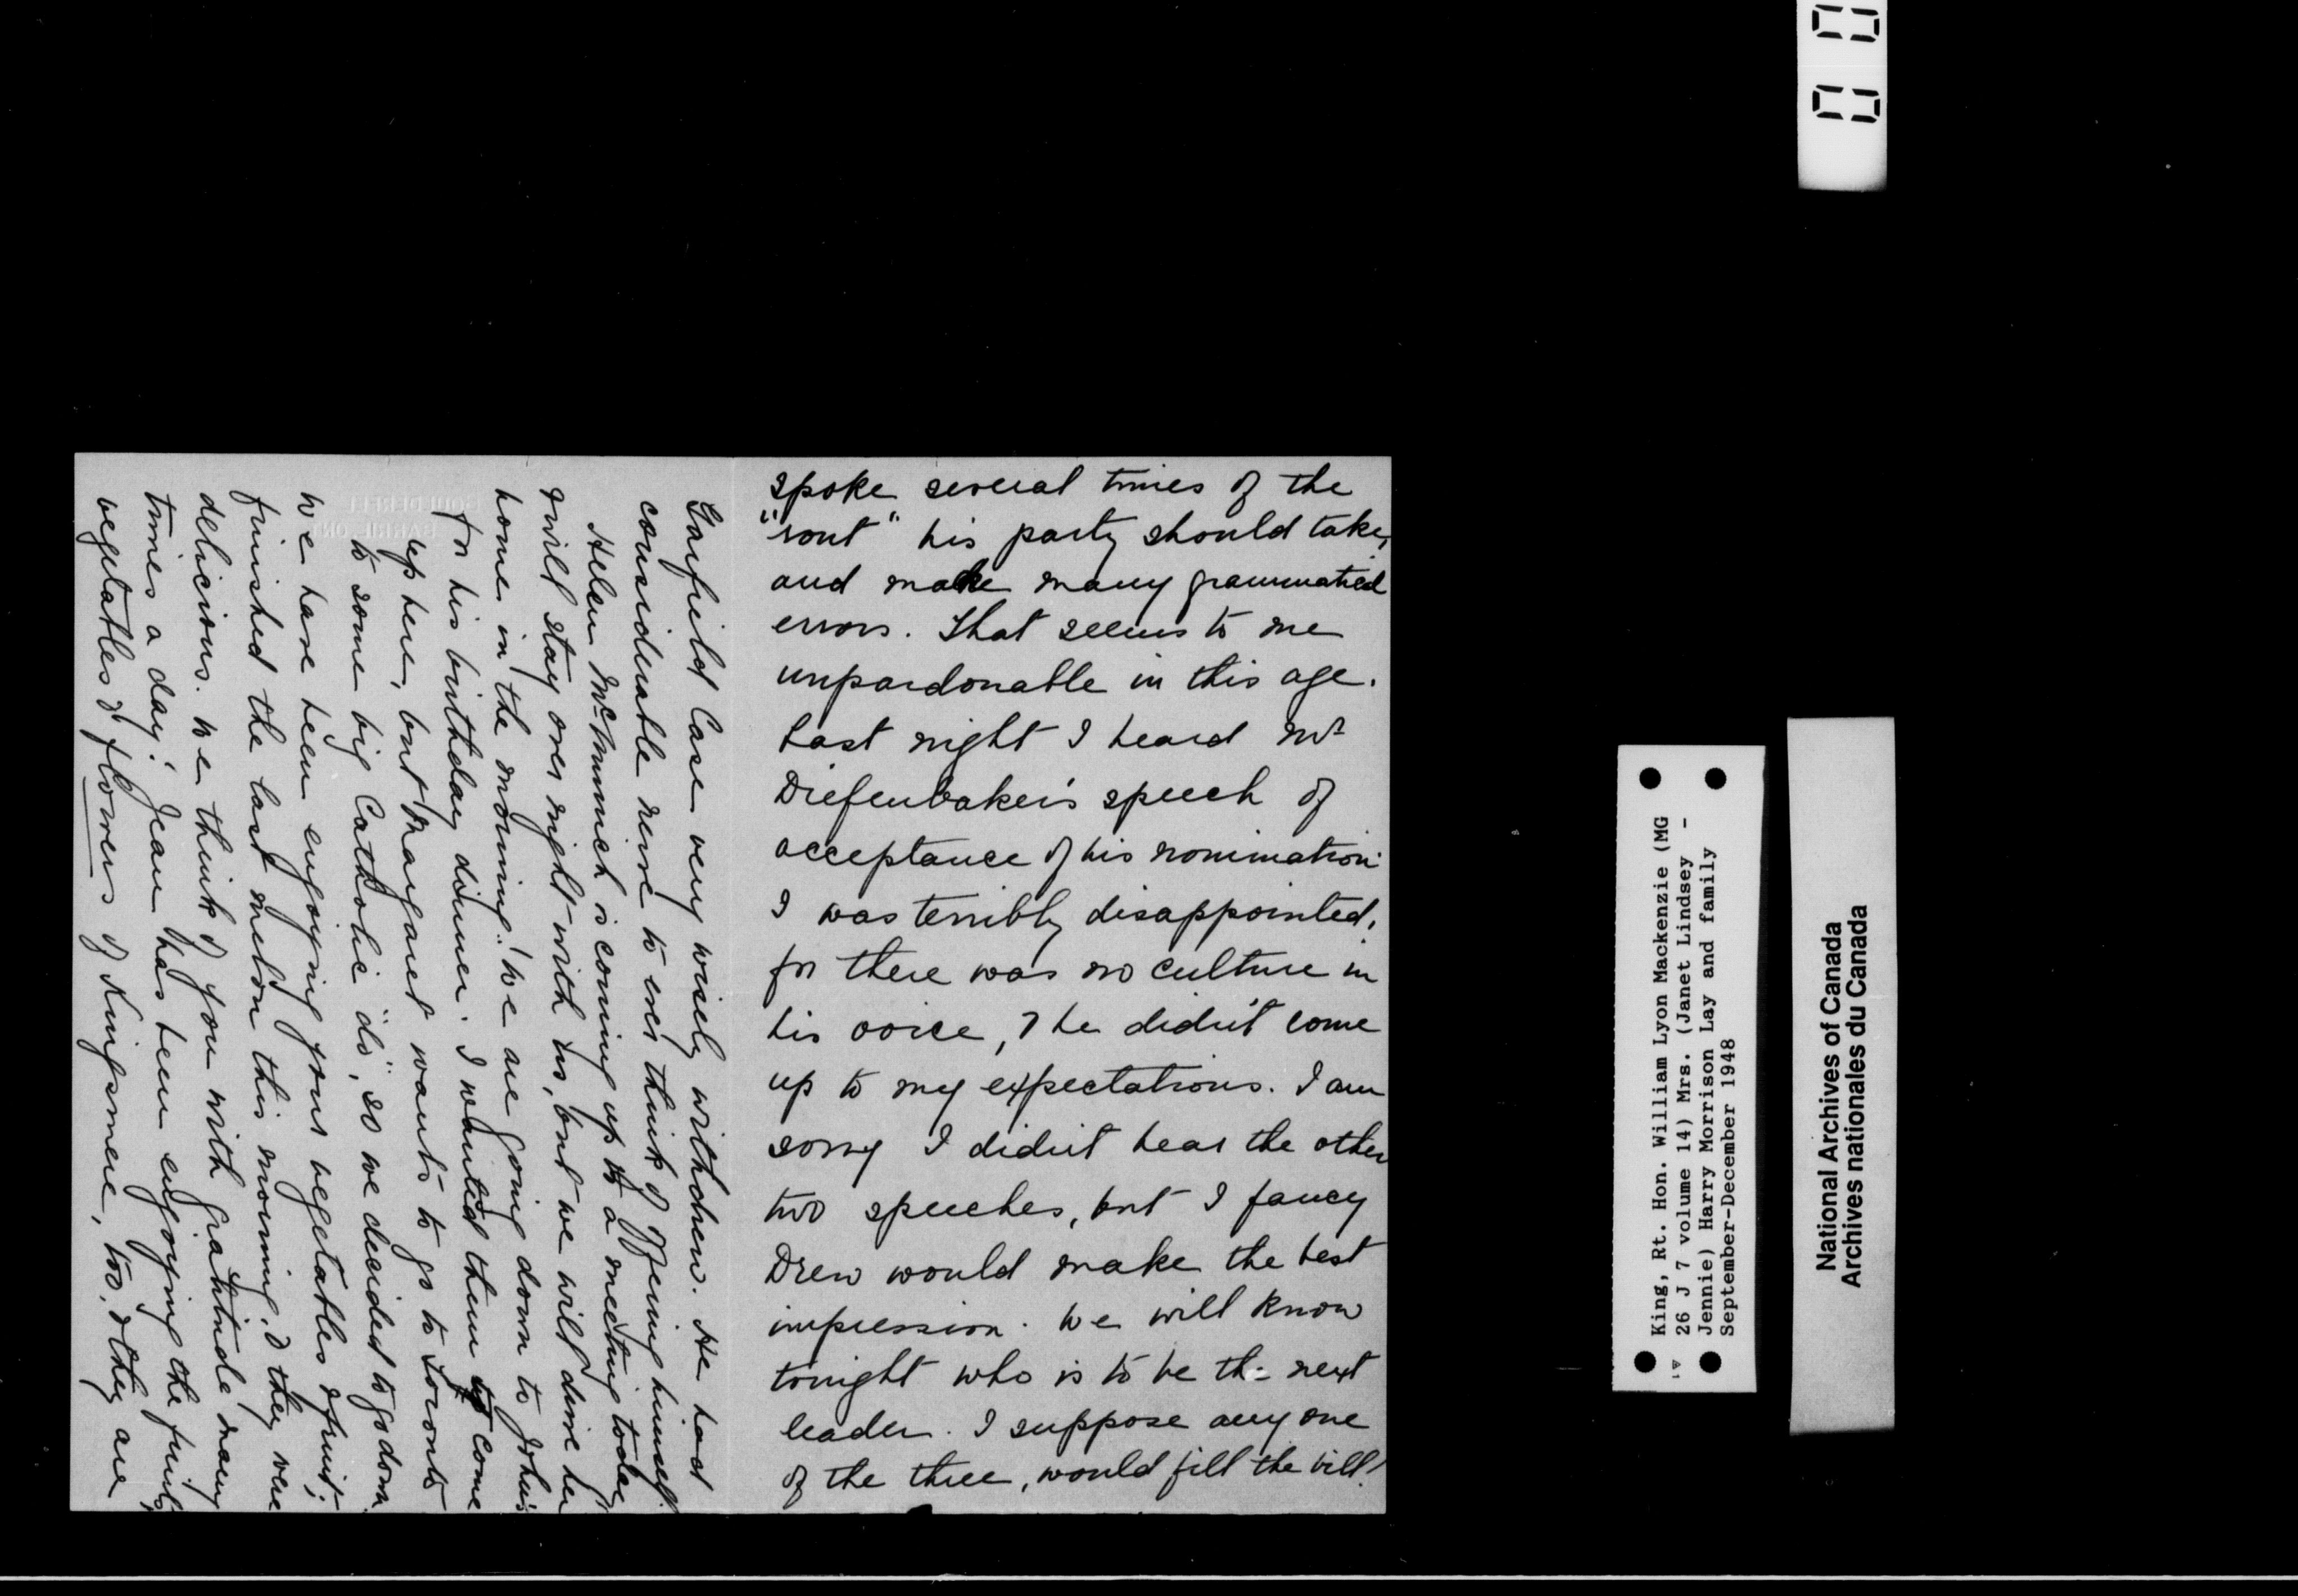 spoke several times of the
"rout" his party should take,
and make many grammatical
errors. That seems to me
unpardonable in this age.
Last night I heard Mr
Diefenbaker's speech of
acceptance of his nomination
I was terribly disappointed,
for there was no culture in
his voice, & he didn't come
up to my expectations. I am
sorry I didn't hear the other
two speeches, but I fancy
Drew would make the best
impression. We will know
tonight who is to be the next
leader. I suppose any one
of the three, would fill the bill!
Garfield Case very wisely withdrew. He had
considerable nerve to ever think of offering himself.
Helen McMurrich is coming up to a meeting today
& will stay over night with us, but we will drive her
home in the morning. We are going down to John's
for his birthday dinner. I wanted them to come
up here, but Margaret wants to go to Toronto
to some big Catholic "do", so we decided to go down.
We have been enjoying your vegetables & fruit;
finished the last melon this morning, & they were
delicious. We think of you with gratitude many
times a day! Jean has been enjoying the fruits,
vegetables & flowers of Kingsmere, too. & they are
King, Rt. Hon. William Lyon Mackenzie (MG
26 J 7 volume 14) Mrs. (Janet Lindsey -
Jennie) Harry Morrison Lay and family
September-December 1948
National Archives of Canada
Archives nationales du Canada